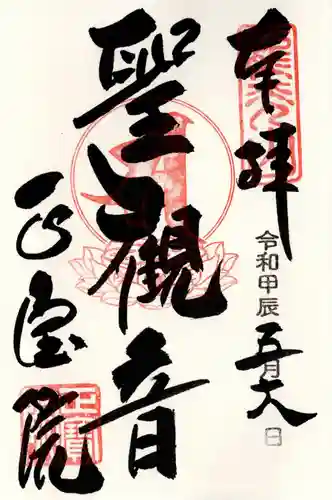 奉拝
令和甲辰五月六日
聖観音
正宝院
正寶